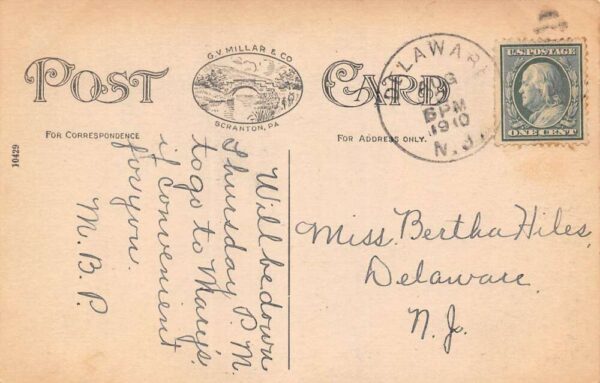 POST CARD
G.V. MILLAR & CO
SCRANTON, PA
FOR CORRESPONDENCE
FOR ADDRESS ONLY.
10429
DELAWARE
6 PM
1910
N.J.
U.S. POSTAGE
ONE CENT
Will be down
Thursday P.M.
to go to Mary's
if convenient
for you.
M.B.P.
Miss. Bertha Hiles,
Delaware.
N.J.